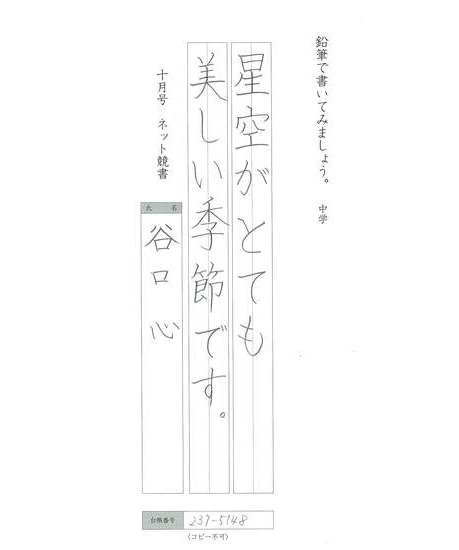 鉛筆で書いてみましょう。 中学
星空がとても
美しい季節です。
十月号 ネット競書
氏名
谷口 心
台帳番号 237-5148
〈コピー不可〉